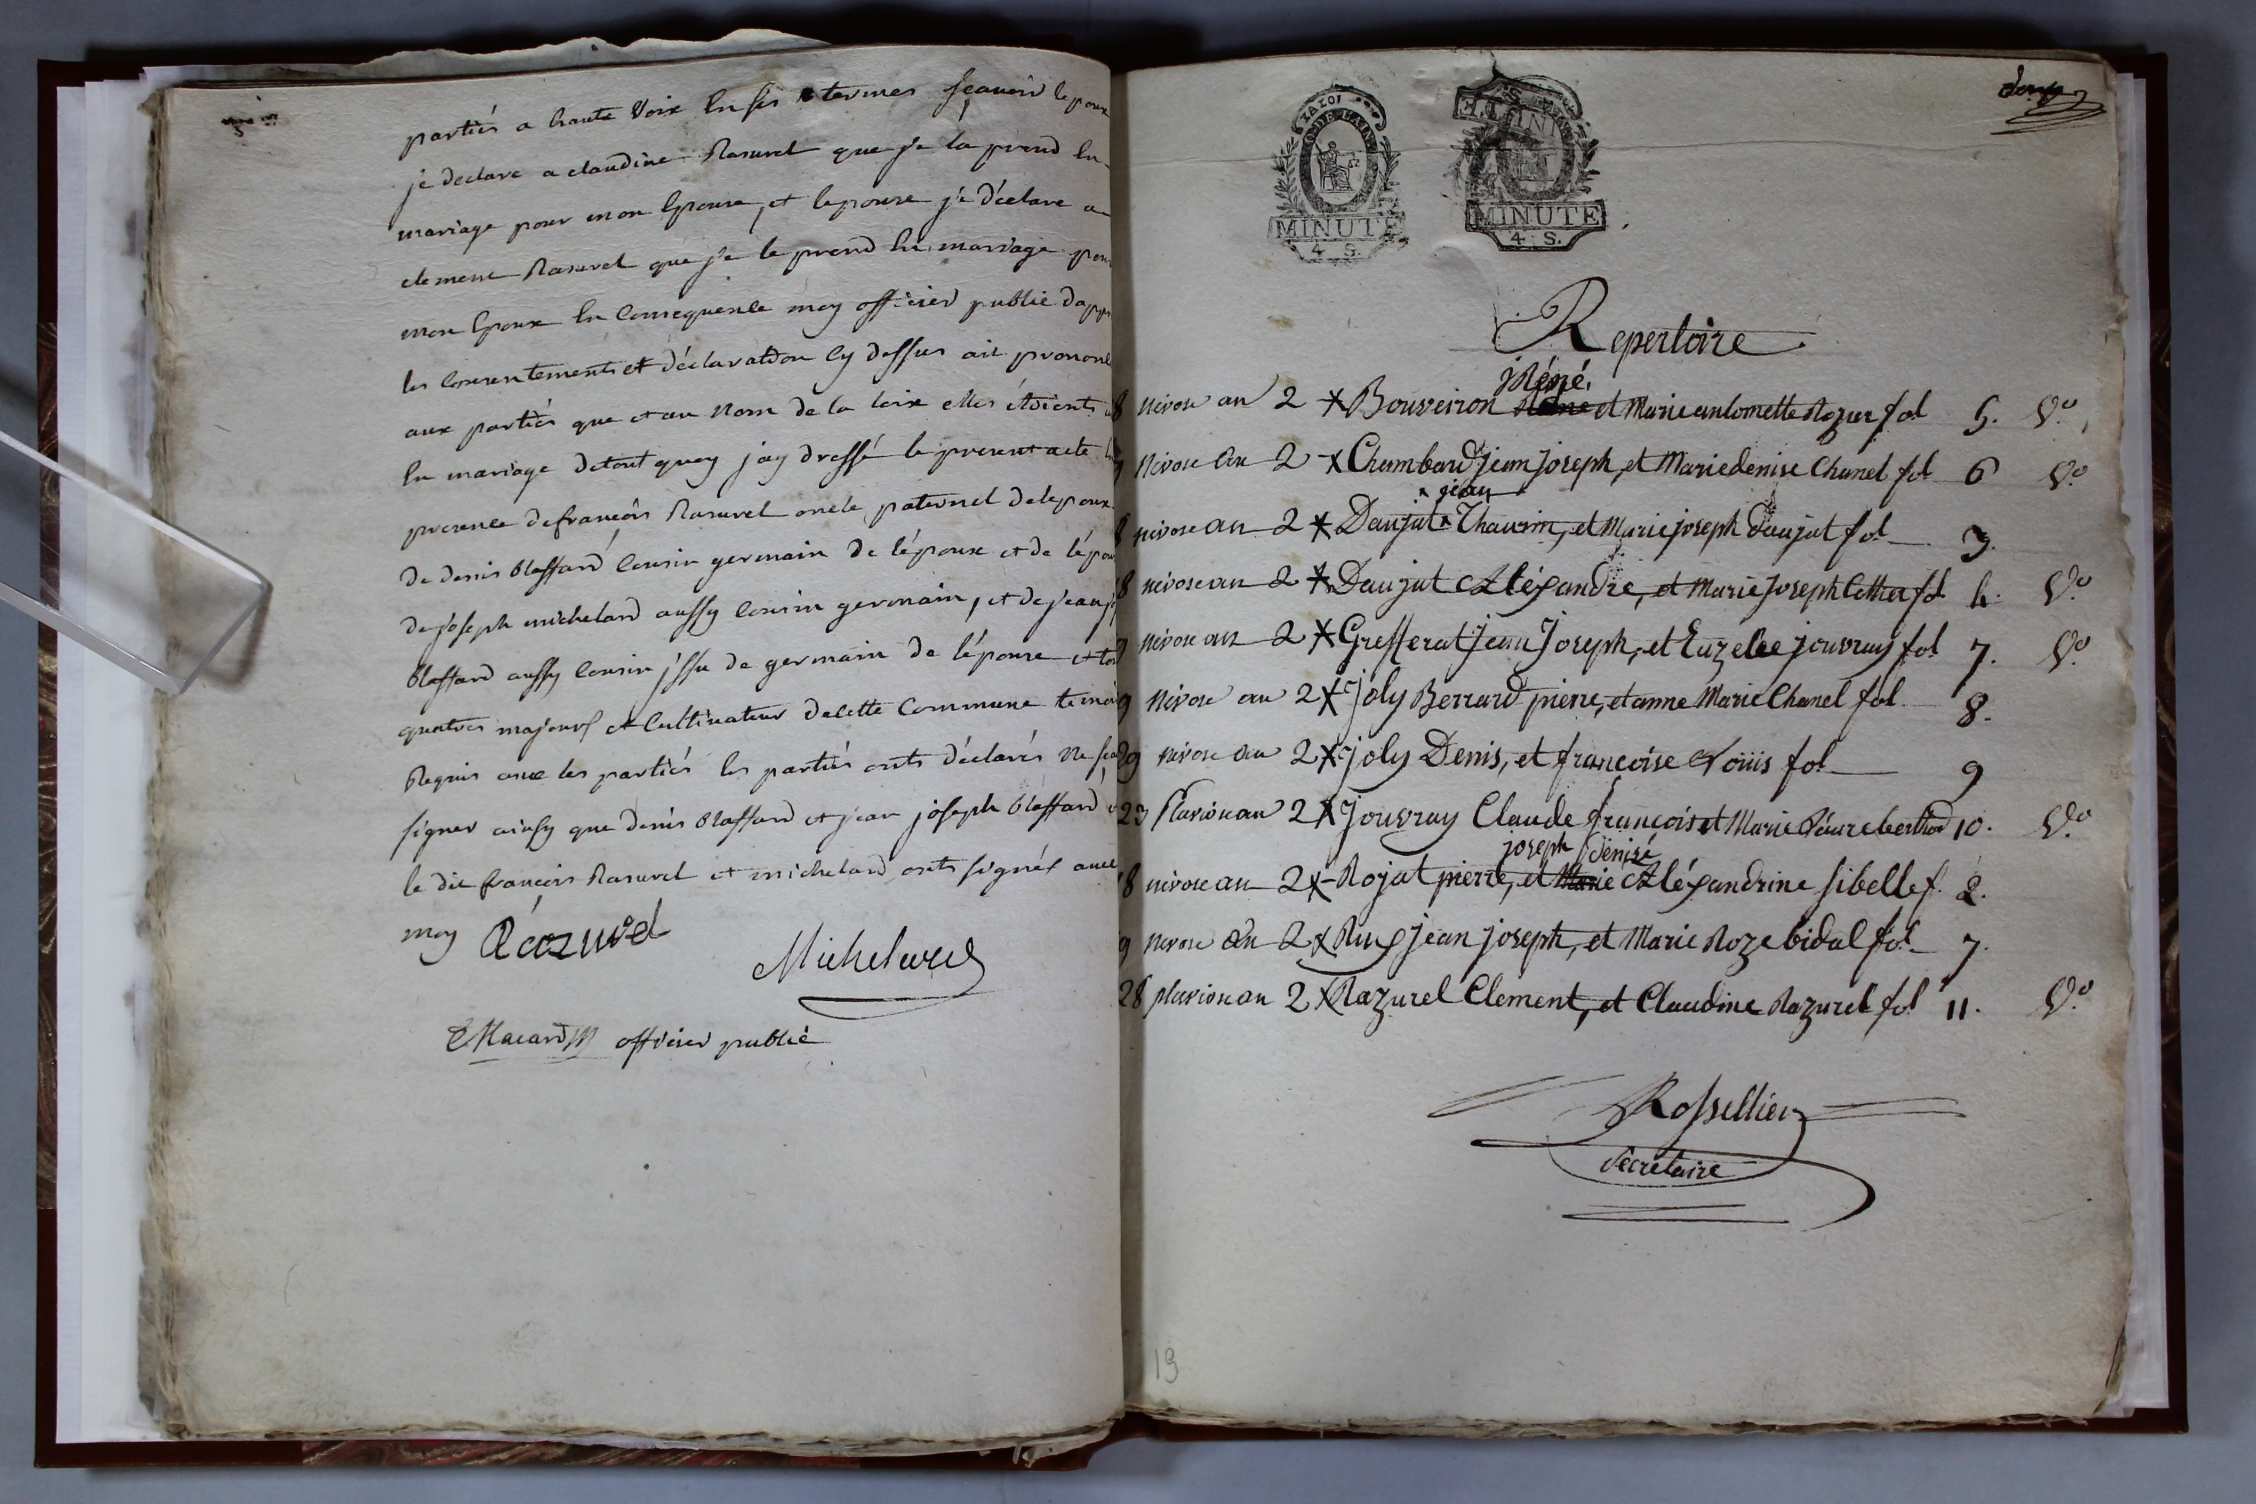 partiés a haute Voix En ses termes sçavoir lepoux
je declare a claudine Rasurel que je la prend En
mariage pour mon Epouse, et lepouse jé déclare a
clement Rasurel que je le prend En mariage pour
mon Epoux En Consequence moy officier public dapprés
les Consentements et déclaration Cy dessus ait prononé
aux partiés que et au Nom de la loix elles étoient
En mariage detout quoy jay dressé le present acte En
presence defrançois Rasurel oncle paternel de lepoux
de denis blassard Cousin germain de lépoux et de lépouse
de joseph michelard aussy Cousin germain, et de jean
blassard aussy Cousin jssu de germain de lépouse et tous
quatres majeurs et Cultivateur de cette Commune temoins
Requis avec les partiés les partiés onts déclarés Ne sca
signer ainsy que denis blassard et jean joseph blassard
le dit françois Rasurel et michelard onts signés avec
moy Razurel
Michelard
Macard officier public
MINUTE
4 S.
MINUTE
4 S.
Repertoire
Réné
8 nivose an 2 Bouveiron et Marie antoinette Rozier fol 5. Vo
nivose an 2 Chambard jean Joseph, et Marie denise Chanel fol 6 Vo
jean
8 nivose an 2 Daujat Thaurin, et Marie joseph daujat fol 3.
8 nivose an 2 Daujat Aléxandre, et Marie Joseph Cottier fol 4. Vo
9 nivose an 2 Grefferat jean Joseph, et Suzelee jouvray fol 7. Vo
9 nivose an 2 joly Berrard pierre, et anne Marie Chanel fol 8.
29 nivose an 2 joly Denis, et françoise Louis fol 9
23 pluviose an 2 jouvray Claude françois et Marie Laure berthod 10. Vo
joseph denise
8 nivose an 2 Rojat pierre, et Marie Aléxandrine sibelle f. 2.
9 nivose an 2 Ruf jean joseph, et Marie Roze bidal fol 7.
28 pluviose an 2 Razurel Clement, et Claudine Razurel fol 11. Vo
Rossellier
Secretaire
19